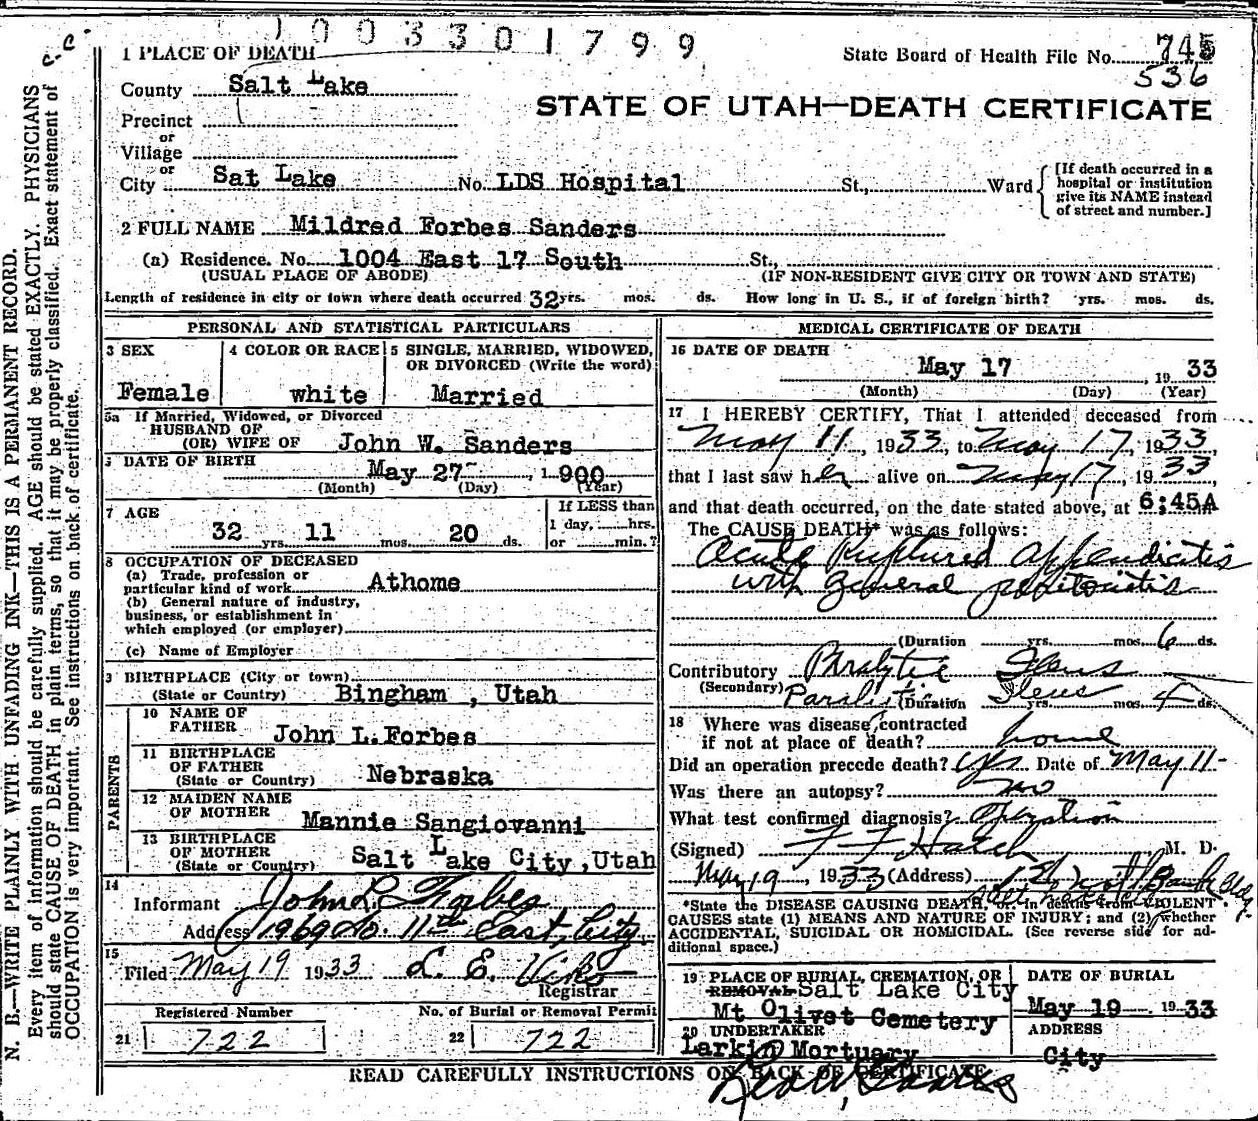 1003301799
C-C
1 PLACE OF DEATH
State Board of Health File No. 745
536
County Salt Lake
STATE OF UTAH—DEATH CERTIFICATE
Precinct
or
Village
or
City Sat Lake No. LDS Hospital St., Ward
[If death occurred in a hospital or institution give its NAME instead of street and number.]
2 FULL NAME Mildred Forbes Sanders
(a) Residence. No. 1004 East 17 South St.,
(USUAL PLACE OF ABODE) (IF NON-RESIDENT GIVE CITY OR TOWN AND STATE)
Length of residence in city or town where death occurred 32 yrs. mos. ds. How long in U. S., if of foreign birth? yrs. mos. ds.
PERSONAL AND STATISTICAL PARTICULARS
3 SEX 4 COLOR OR RACE 5 SINGLE, MARRIED, WIDOWED, OR DIVORCED (Write the word)
Female white Married
5a If Married, Widowed, or Divorced
HUSBAND OF
(OR) WIFE OF John W. Sanders
DATE OF BIRTH May 27 1900
(Month) (Day) (Year)
7 AGE If LESS than
32 yrs. 11 mos. 20 ds. 1 day, hrs.
or min.?
8 OCCUPATION OF DECEASED
(a) Trade, profession or
particular kind of work Athome
(b) General nature of industry,
business, or establishment in
which employed (or employer)
(c) Name of Employer
9 BIRTHPLACE (City or town)
(State or Country) Bingham, Utah
PARENTS
10 NAME OF
FATHER John L. Forbes
11 BIRTHPLACE
OF FATHER
(State or Country) Nebraska
12 MAIDEN NAME
OF MOTHER Mannie Sangiovanni
13 BIRTHPLACE
OF MOTHER
(State or Country) Salt Lake City, Utah
14
Informant John L. Forbes
Address 1969 So. 11th East, City
15
Filed May 19 1933 L. E. Viko
Registrar
Registered Number No. of Burial or Removal Permit
21 722 22 722
MEDICAL CERTIFICATE OF DEATH
16 DATE OF DEATH
May 17, 1933
(Month) (Day) (Year)
17 I HEREBY CERTIFY, That I attended deceased from
May 11, 1933, to May 17, 1933,
that I last saw her alive on May 17, 1933
and that death occurred, on the date stated above, at 6:45A
The CAUSE DEATH* was as follows:
Acute Ruptured appendicitis
with general peritonitis
(Duration yrs. mos. 6 ds.
Contributory Paralytic Ileus
(Secondary) Paralitic Ileus
(Duration yrs. mos. 4 ds.
18 Where was disease contracted
if not at place of death? home
Did an operation precede death? yes Date of May 11-
Was there an autopsy? no
What test confirmed diagnosis? Operation
(Signed) F F Hatch M. D.
May 19, 1933 (Address)
*State the DISEASE CAUSING DEATH, or, in deaths from VIOLENT
CAUSES state (1) MEANS AND NATURE OF INJURY; and (2) whether
ACCIDENTAL, SUICIDAL OR HOMICIDAL. (See reverse side for ad-
ditional space.)
19 PLACE OF BURIAL, CREMATION, OR REMOVAL DATE OF BURIAL
Salt Lake City
Mt Olivet Cemetery May 19 1933
20 UNDERTAKER ADDRESS
Larkin Mortuary City
READ CAREFULLY INSTRUCTIONS ON BACK OF CERTIFICATE
N. B.—WRITE PLAINLY WITH UNFADING INK—THIS IS A PERMANENT RECORD.
Every item of information should be carefully supplied. AGE should be stated EXACTLY. PHYSICIANS
should state CAUSE OF DEATH in plain terms, so that it may be properly classified. Exact statement of
OCCUPATION is very important. See instructions on back of certificate.